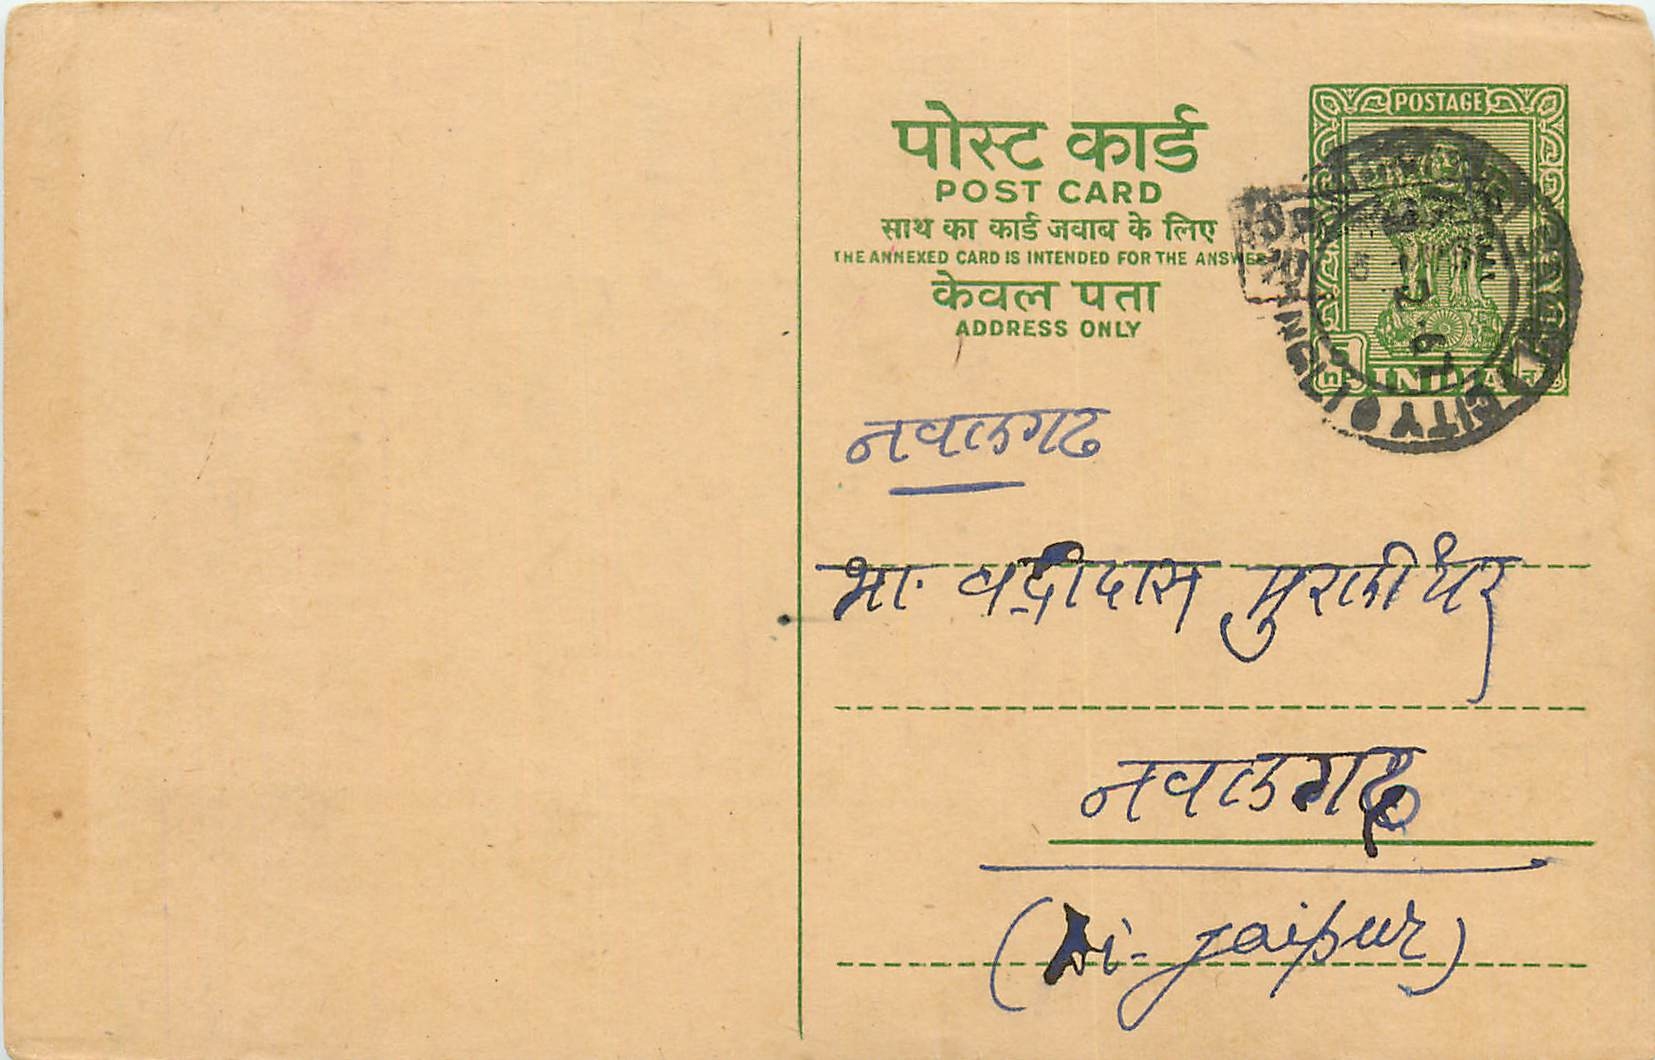 POSTAGE
पोस्ट कार्ड
POST CARD
साथ का कार्ड जवाब के लिए
THE ANNEXED CARD IS INTENDED FOR THE ANSWER
केवल पता
ADDRESS ONLY
INDIA
CITY
नवलगढ
भा. बद्रीदास मुरलीधर
नवलगढ
Jaipur)